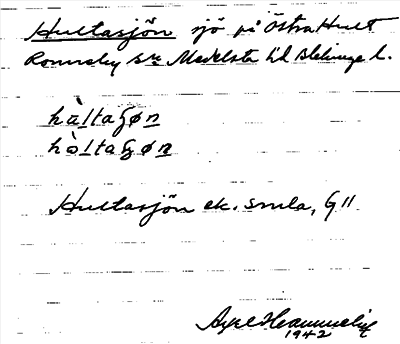 Hultasjön sjö på Östra Hult
Ronneby sn Medelsta hd Blekinge l.
hàltaʃøn
hòltaʃøn
Hultasjön ek. smla, G 11
Axel
1942